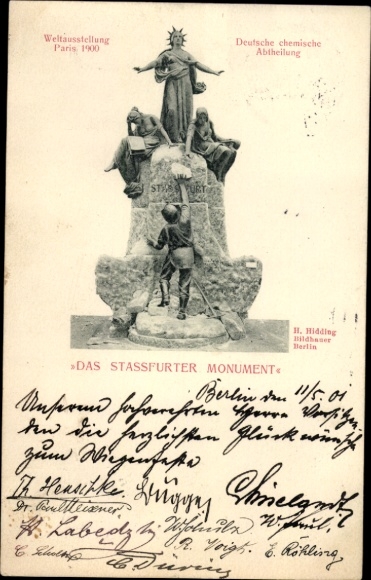 Weltausstellung
Paris 1900
Deutsche chemische
Abtheilung
STASSFURT
H. Hidding
Bildhauer
Berlin
»DAS STASSFURTER MONUMENT«
Berlin den 11/5. 01
Unserem hochverehrten Herrn Vorsitzen-
den die herzlichsten Glückwünsche
zum Wiegenfeste
Dr.
R. Voigt.
E. Röhling
C. Düring